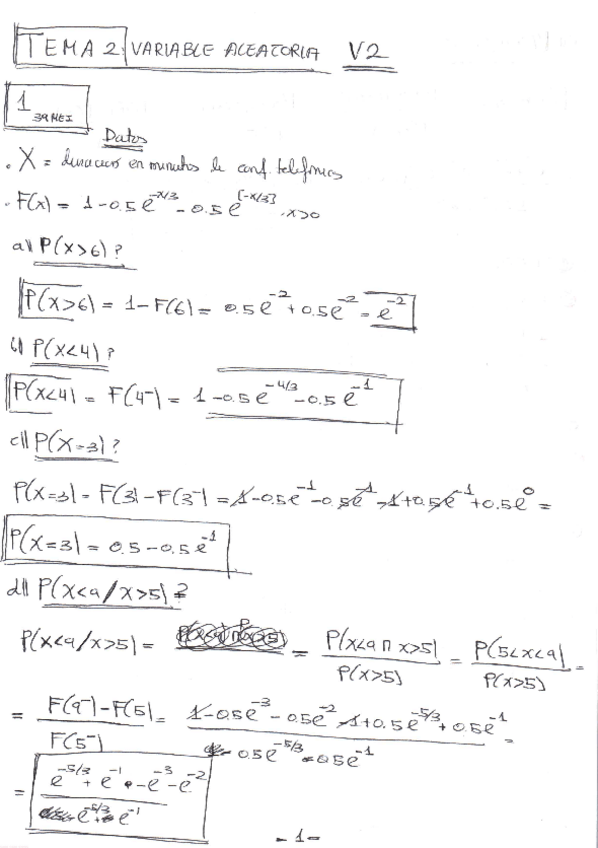 TEMA 2 VARIABLE ALEATORIA V2
1
Datos
. X = duracion en minutos de conf. telefónicas
. F(x) = 1 - 0.5 e^{-x/3} - 0.5 e^{[-x/3]} . x>0
a) P(x>6) ?
P(x>6) = 1 - F(6) = 0.5 e^{-2} + 0.5 e^{-2} = e^{-2}
b) P(x<4) ?
P(x<4) = F(4^-) = 1 - 0.5 e^{-4/3} - 0.5 e^{-1}
c) P(x=3) ?
P(x=3) = F(3) - F(3^-) = 1 - 0.5 e^{-1} - 0.5 e^{-1} - 1 + 0.5 e^{-1} + 0.5 e^{0} =
P(x=3) = 0.5 - 0.5 e^{-1}
d) P(x<9 / x>5) ?
P(x<9 / x>5) = = P(x<9 ∩ x>5) / P(x>5) = P(5<x<9) / P(x>5) =
= F(9^-) - F(5) / F(5^-) = 1 - 0.5 e^{-3} - 0.5 e^{-2} - 1 + 0.5 e^{-5/3} + 0.5 e^{-1} / 0.5 e^{-5/3} 0.5 e^{-1} =
= e^{-5/3} + e^{-1} - e^{-3} - e^{-2} / e^{-5/3} + e^{-1}
- 1 -